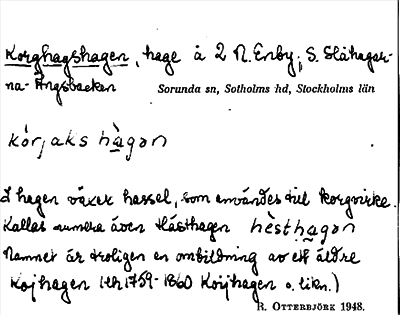 Korghagshagen, hage å 2 N. Enby, S. Slåhagar-
na - Ängsbacken
Sorunda sn, Sotholms hd, Stockholms län
kórjaks hàgan
I hagen växer hassel, som användes till korgvirke.
Kallas numera även Hästhagen hèsthagan
Namnet är troligen en ombildning av ett äldre
Kojhagen 1759-1860 Koijhagen o. likn.)
R. Otterbjörk 1948.